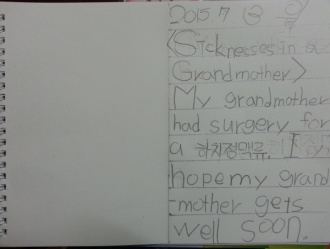 2015.7
<Sicknesses in
Grandmother>
My grandmother
had surgery for
a 하지정맥류. I
hope my grand
-mother gets
well soon.